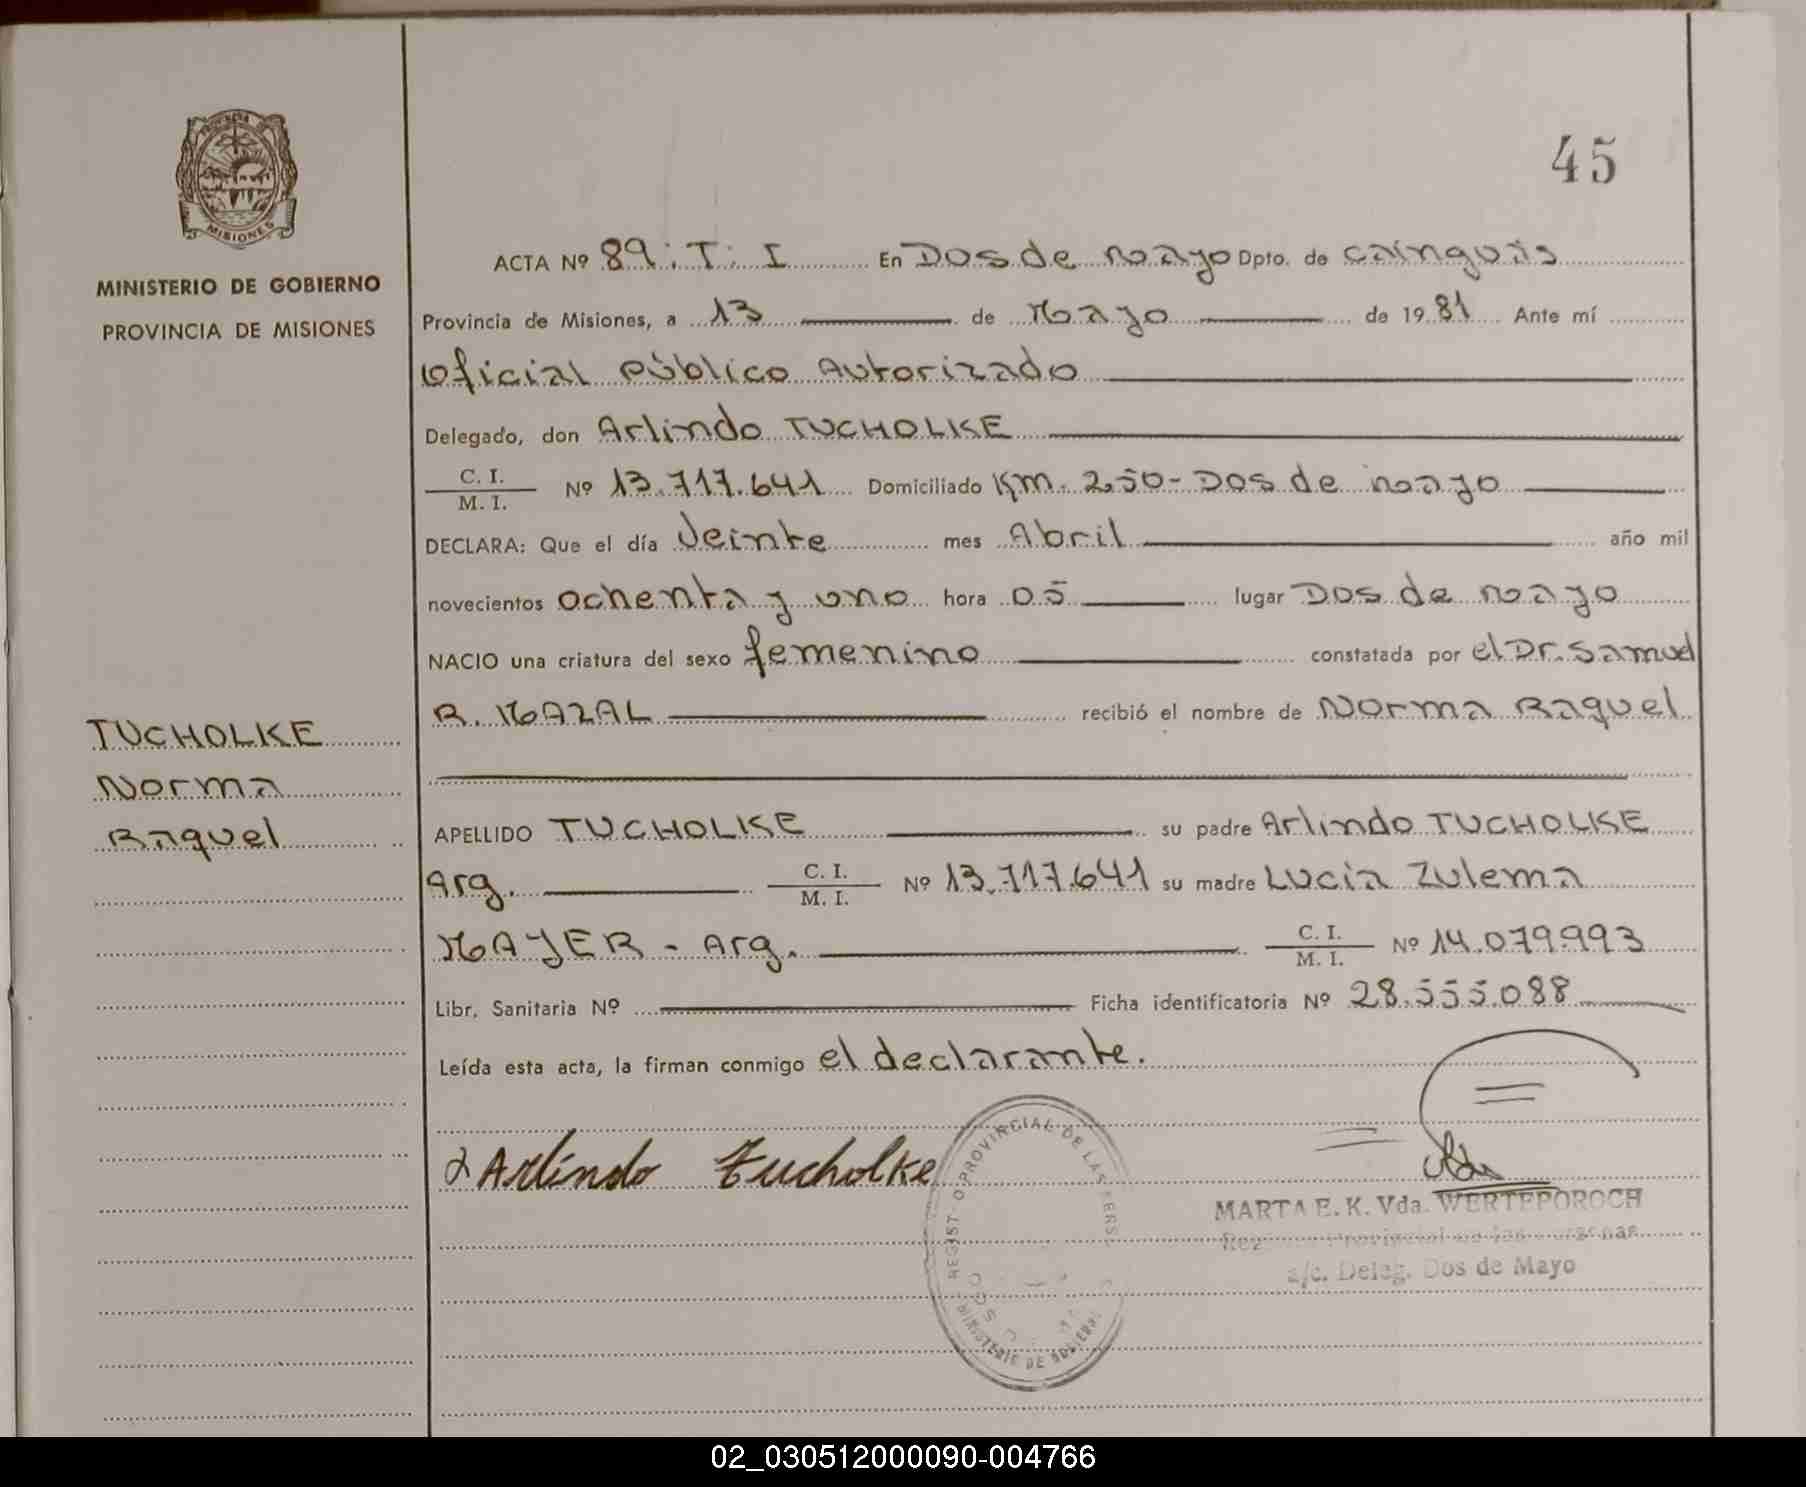 45
PROVINCIA
MISIONES
MINISTERIO DE GOBIERNO
PROVINCIA DE MISIONES
ACTA Nº 89: T: I En Dos de Mayo Dpto. de Cainguás
Provincia de Misiones, a 13 de Mayo de 1981 Ante mí
Oficial Público Autorizado
Delegado, don Arlindo TUCHOLKE
C. I.
M. I. Nº 13.717.641 Domiciliado Km. 250 - Dos de Mayo
DECLARA: Que el día Veinte mes Abril año mil
novecientos ochenta y uno hora 05 lugar Dos de Mayo
NACIO una criatura del sexo femenino constatada por el Dr. Samuel
R. MAZAL recibió el nombre de Norma Raquel
TUCHOLKE
Norma
Raquel
APELLIDO TUCHOLKE su padre Arlindo TUCHOLKE
Arg. C. I.
M. I. Nº 13.717.641 su madre Lucia Zulema
MAYER - Arg. C. I.
M. I. Nº 14.079.993
Libr. Sanitaria Nº Ficha identificatoria Nº 28.555.088
Leída esta acta, la firman conmigo el declarante.
Arlindo Tucholke
REGIST O PROVINCIAL DE LAS PERS
MINISTERIO DE GOBIERNO
MARTA E. K. Vda. WERTEPOROCH
Provincial de las Personas
a/c. Deleg. Dos de Mayo
02_030512000090-004766